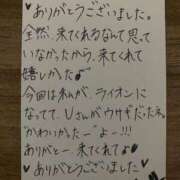 ♥ありがとうございました。
全然、来てくれるなんて思って
いなかったから、来てくれて
嬉しかった♪
今回は私が、ライオンに
なってて、Uさんがウサギだったネ。
"かわいかったー"よー!!!
ありがとー、来てくれて♪
♥ありがとうございました♥